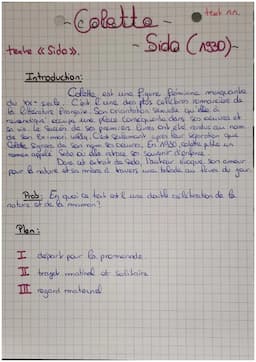 text nn.
-Colette-
texte «Sido».
- Sido (1930)-
Introduction:
Colette est une figure féminine marquante
du XXe siècle. C'est l'une des plus célèbres romancières de
la littérature française. Son orientation sexuelle
occupa une place conséquente dans ses oeuvres et
sa vie. Le succès de ses premiers livres ont été au nom
de son Ex-mari Willy. C'est seulement après leur séparation que
Colette signera de son nom ses oeuvres. En 1930, colette publie un
roman appelé Sido où elle retrace ses souvenirs d'enfance.
Dans cet extrait de Sido, l'auteur évoque son amour
pour la nature et sa mère à travers une balade au lever du jour.
Prob: En quoi ce texte est-il une double célébration de la
nature et de la maman?
Plan:
I départ pour la promenade
II trajet matinal et solitaire
III regard maternel